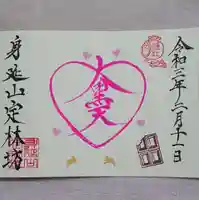 令和三年二月十一日
大黒天
身延山定林坊